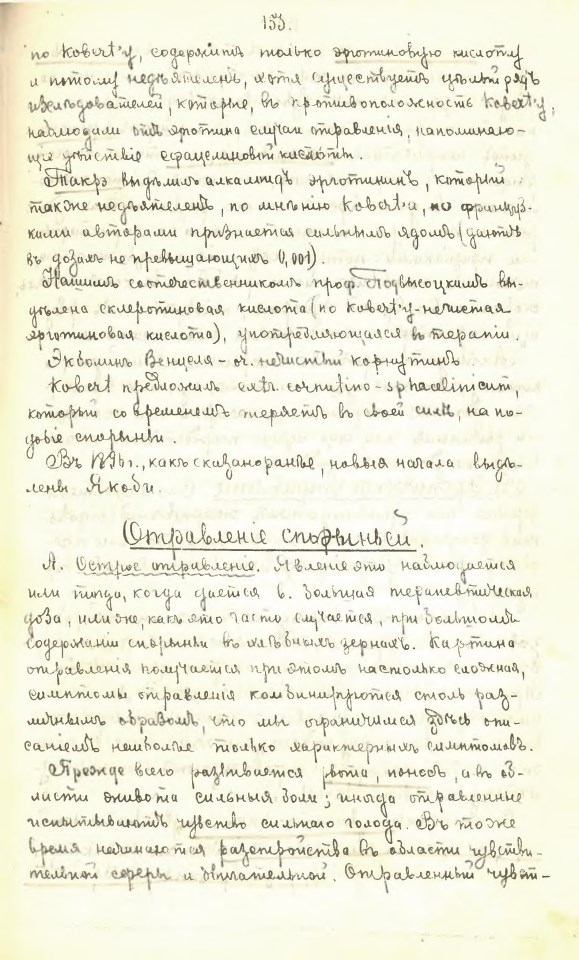 153.
по Kobert'у, содержитъ только эрготиновую кислоту
и потому недѣятеленъ, хотя существуетъ цѣлый рядъ
изслѣдователей, которые, въ противоположность Kobert'у,
наблюдали отъ эрготина случаи отравленія, напоминаю-
щіе дѣйствіе сфацелиновой кислоты.
Такрэ выдѣлилъ алкалоидъ эрготининъ, который
также недѣятеленъ, по мнѣнію Kobert'а, но француз-
скими авторами признается сильнымъ ядомъ (даютъ
въ дозахъ не превышающихъ 0,001).
Нашимъ соотечественникомъ проф. Подвысоцкимъ вы-
дѣлена склеротиновая кислота (по Kobert'у - нечистая
эрготиновая кислота), употребляющаяся въ терапіи.
Экболинъ Венцеля - оч. нечистый корнутинъ.
Kobert предложилъ extr. cornutino-sphacelinicum,
который со временемъ теряетъ въ своей силѣ, на по-
добіе спорыньи.
Въ 1896 г., какъ сказано ранѣе, новыя начала выдѣ-
лены Якоби.
Отравленіе спорыньей.
А. Острое отравленіе. Явленіе это наблюдается
или тогда, когда дается б. большая терапевтическая
доза, или же, какъ это часто случается, при большомъ
содержаніи спорыньи въ хлѣбныхъ зернахъ. Картина
отравленія получается при этомъ настолько сложная,
симптомы отравленія комбинируются столь раз-
личнымъ образомъ, что мы ограничимся здѣсь опи-
саніемъ наиболѣе только характерныхъ симптомовъ.
Прежде всего развивается рвота, поносъ, а въ об-
ласти живота сильныя боли; иногда отравленные
испытываютъ чувство сильнаго голода. Въ тоже
время начинаются разстройства въ области чувстви-
тельной сферы и двигательной. Отравленный чувст-